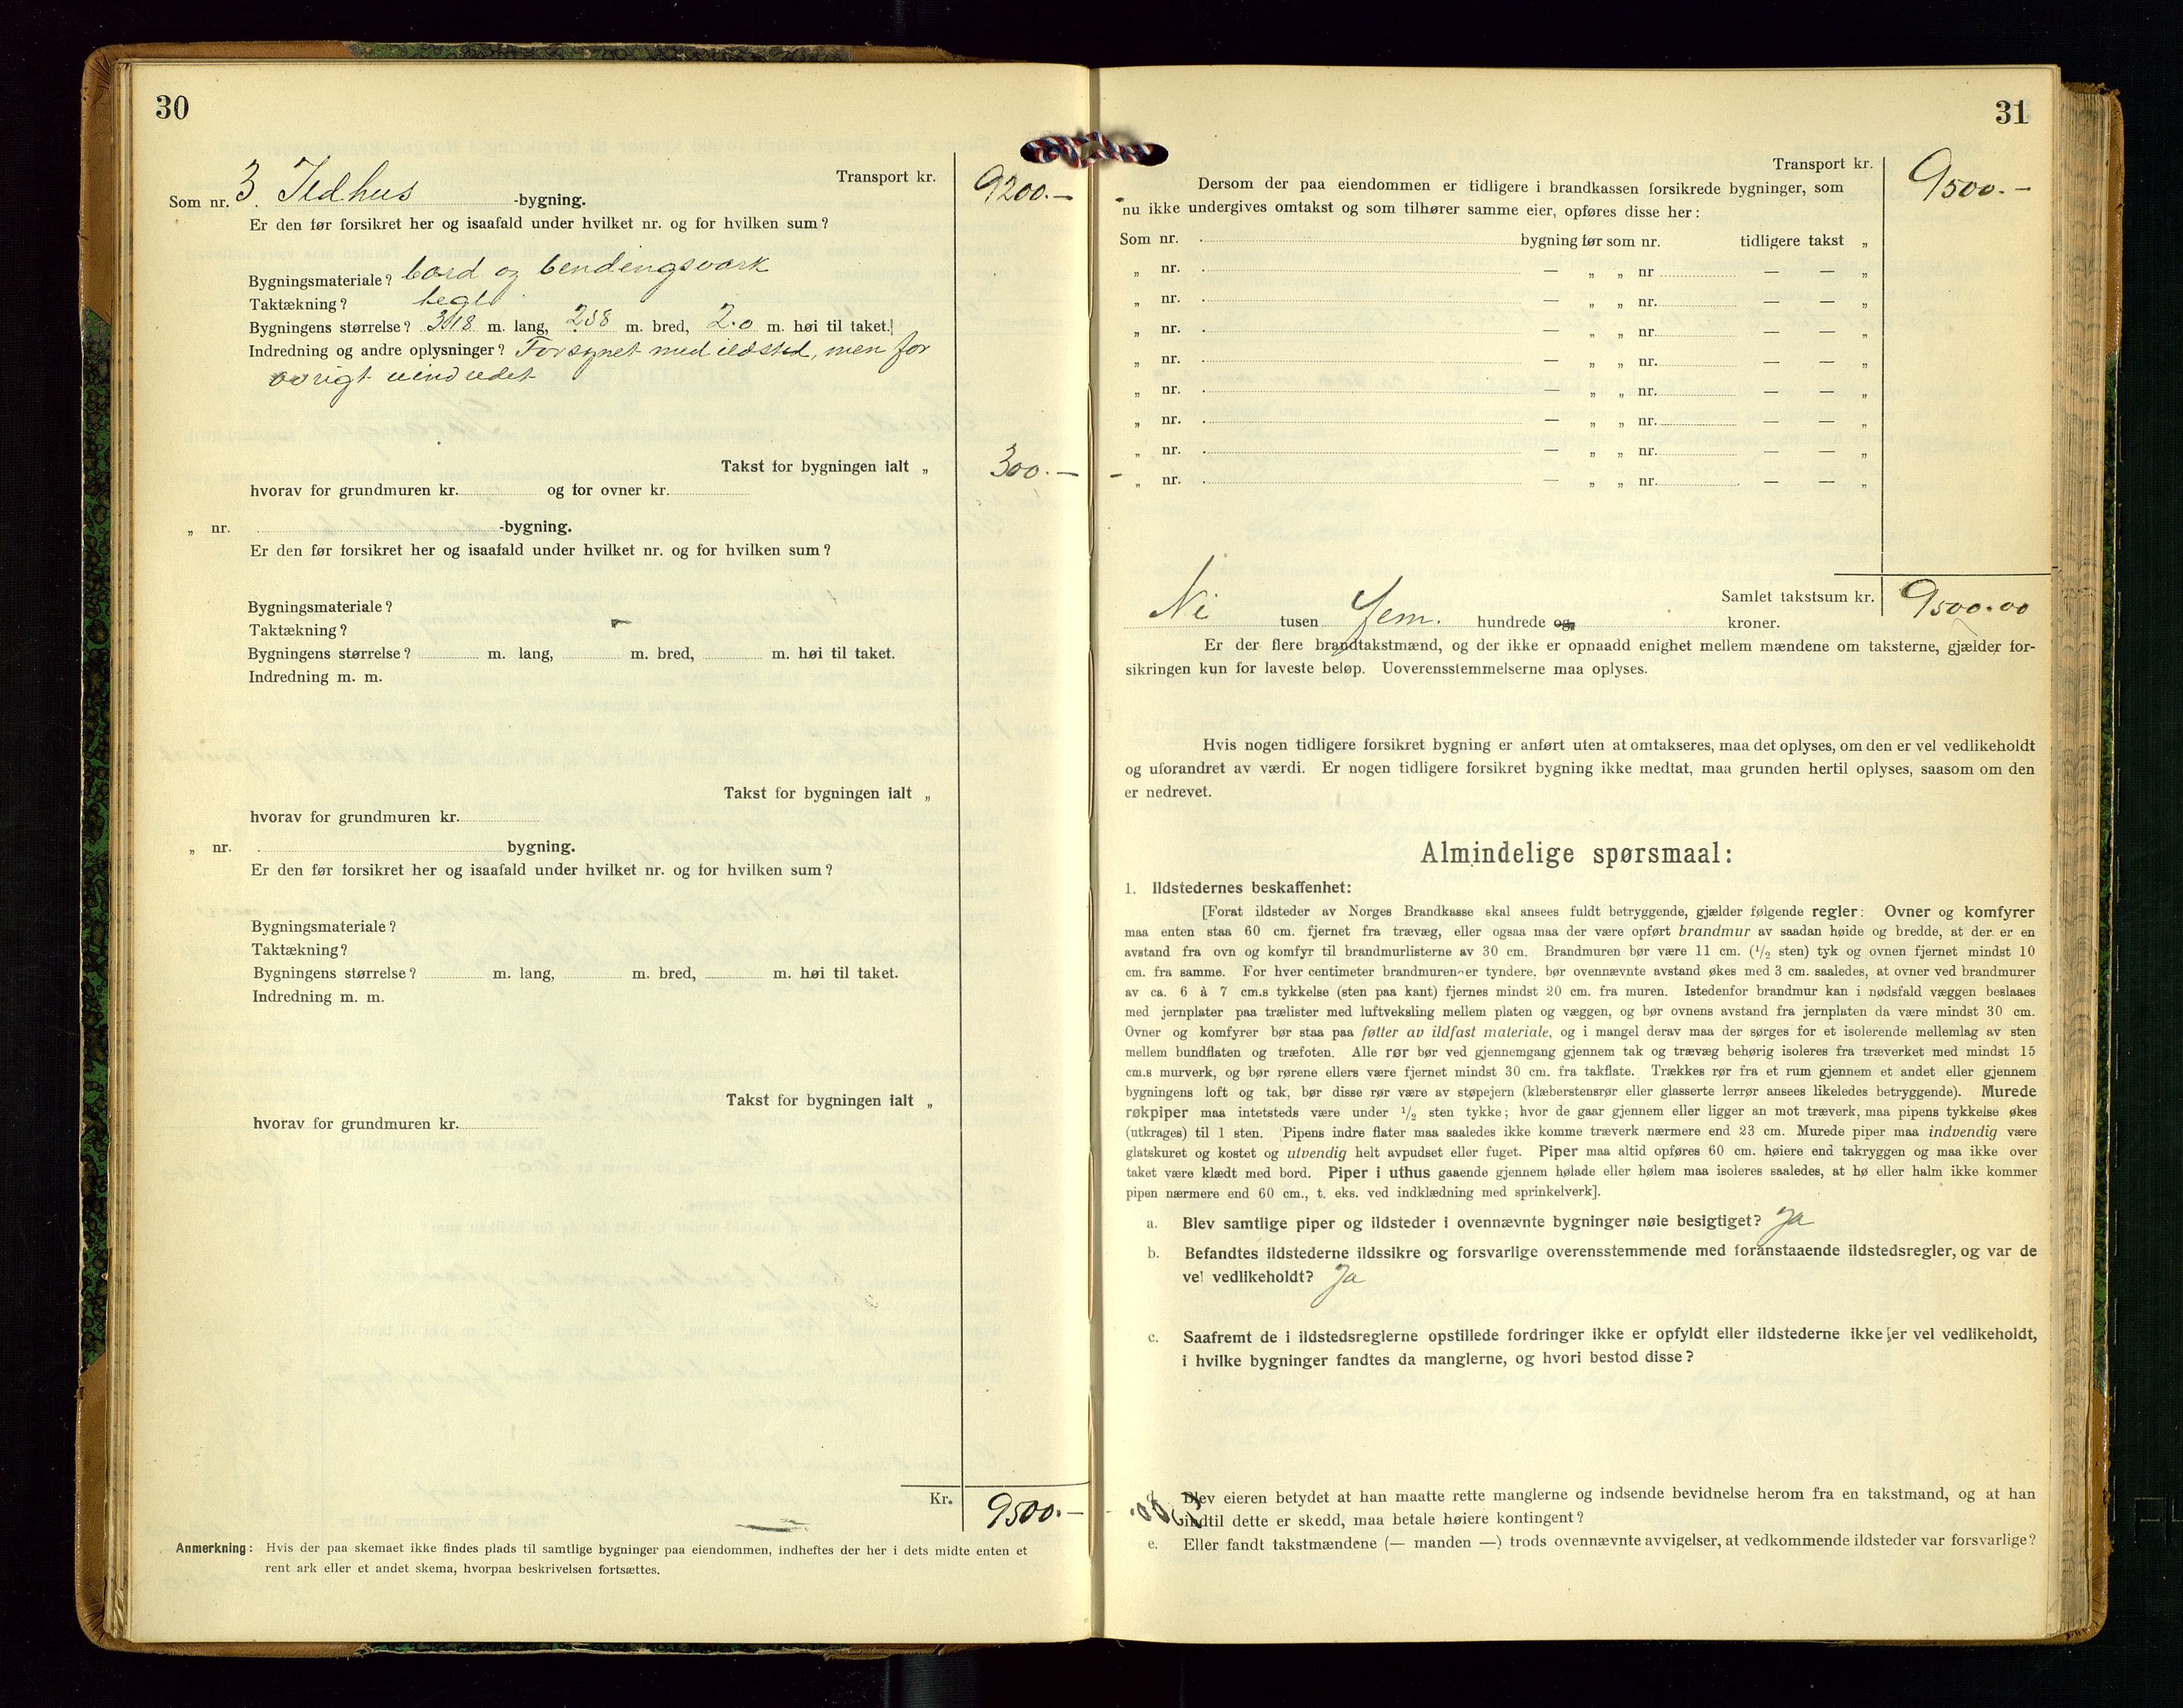 30
Transport kr. 9200.—
Som nr. 3. Ildhus -bygning.
Er den før forsikret her og isaafald under hvilket nr. og for hvilken sum?
Bygningsmateriale? bord og bendingsverk
Taktækning? tegl
Bygningens størrelse? m. lang, 2.58 m. bred, 2.0 m. høi til taket.
Indredning og andre oplysninger? Forsynet med ildsted, men for
øvrigt uindredet
Takst for bygningen ialt „ 300.—
hvorav for grundmuren kr. og for ovner kr.
„ nr. -bygning.
Er den før forsikret her og isaafald under hvilket nr. og for hvilken sum?
Bygningsmateriale?
Taktækning?
Bygningens størrelse? m. lang, m. bred, m. høi til taket.
Indredning m. m.
Takst for bygningen ialt „
hvorav for grundmuren kr.
„ nr. bygning.
Er den før forsikret her og isaafald under hvilket nr. og for hvilken sum?
Bygningsmateriale?
Taktækning?
Bygningens størrelse? m. lang, m. bred, m. høi til taket.
Indredning m. m.
Takst for bygningen ialt „
hvorav for grundmuren kr.
Kr. 9500.—
Anmerkning: Hvis der paa skemaet ikke findes plads til samtlige bygninger paa eiendommen, indheftes der her i dets midte enten et
rent ark eller et andet skema, hvorpaa beskrivelsen fortsættes.
31
Transport kr. 9500.—
Dersom der paa eiendommen er tidligere i brandkassen forsikrede bygninger, som
nu ikke undergives omtakst og som tilhører samme eier, opføres disse her:
Som nr. bygning før som nr. tidligere takst „
„ nr. — „ „ nr. — — „
„ nr. — „ „ nr. — — „
„ nr. — „ „ nr. — — „
„ nr. — „ „ nr. — — „
„ nr. — „ „ nr. — — „
„ nr. — „ „ nr. — — „
„ nr. — „ „ nr. — — „
„ nr. — „ „ nr. — — „
Samlet takstsum kr. 9500.00
Ni tusen fem. hundrede og kroner.
Er der flere brandtakstmænd, og der ikke er opnaadd enighet mellem mændene om taksterne, gjælder for-
sikringen kun for laveste beløp. Uoverensstemmelserne maa oplyses.
Hvis nogen tidligere forsikret bygning er anført uten at omtakseres, maa det oplyses, om den er vel vedlikeholdt
og uforandret av værdi. Er nogen tidligere forsikret bygning ikke medtat, maa grunden hertil oplyses, saasom om den
er nedrevet.
Almindelige spørsmaal:
1. Ildstedernes beskaffenhet:
[Forat ildsteder av Norges Brandkasse skal ansees fuldt betryggende, gjælder følgende regler: Ovner og komfyrer
maa enten staa 60 cm. fjernet fra trævæg, eller ogsaa maa der være opført brandmur av saadan høide og bredde, at der er en
avstand fra ovn og komfyr til brandmurlisterne av 30 cm. Brandmuren bør være 11 cm. (1/2 sten) tyk og ovnen fjernet mindst 10
cm. fra samme. For hver centimeter brandmuren er tyndere, bør ovennævnte avstand økes med 3 cm. saaledes, at ovner ved brandmurer
av ca. 6 à 7 cm.s tykkelse (sten paa kant) fjernes mindst 20 cm. fra muren. Istedenfor brandmur kan i nødsfald væggen beslaaes
med jernplater paa trælister med luftveksling mellem platen og væggen, og bør ovnens avstand fra jernplaten da være mindst 30 cm.
Ovner og komfyrer bør staa paa føtter av ildfast materiale, og i mangel derav maa der sørges for et isolerende mellemlag av sten
mellem bundflaten og træfoten. Alle rør bør ved gjennemgang gjennem tak og trævæg behørig isoleres fra træverket med mindst 15
cm.s murverk, og bør rørene ellers være fjernet mindst 30 cm. fra takflate. Trækkes rør fra et rum gjennem et andet eller gjennem
bygningens loft og tak, bør disse rør være av støpejern (klæberstensrør eller glasserte lerrør ansees likeledes betryggende). Murede
røkpiper maa intetsteds være under 1/2 sten tykke; hvor de gaar gjennem eller ligger an mot træverk, maa pipens tykkelse økes
(utkrages) til 1 sten. Pipens indre flater maa saaledes ikke komme træverk nærmere end 23 cm. Murede piper maa indvendig være
glatskuret og kostet og utvendig helt avpudset eller fuget. Piper maa altid opføres 60 cm. høiere end takryggen og maa ikke over
taket være klædt med bord. Piper i uthus gaaende gjennem hølade eller hølem maa isoleres saaledes, at hø eller halm ikke kommer
pipen nærmere end 60 cm., t. eks. ved indklædning med sprinkelverk].
a. Blev samtlige piper og ildsteder i ovennævnte bygninger nøie besigtiget? Ja
b. Befandtes ildstederne ildssikre og forsvarlige overensstemmende med foranstaaende ildstedsregler, og var de
vel vedlikeholdt? Ja
c. Saafremt de i ildstedsreglerne opstillede fordringer ikke er opfyldt eller ildstederne ikke er vel vedlikeholdt,
i hvilke bygninger fandtes da manglerne, og hvori bestod disse?
d. Blev eieren betydet at han maatte rette manglerne og indsende bevidnelse herom fra en takstmand, og at han
indtil dette er skedd, maa betale høiere kontingent?
e. Eller fandt takstmændene (— manden —) trods ovennævnte avvigelser, at vedkommende ildsteder var forsvarlige?